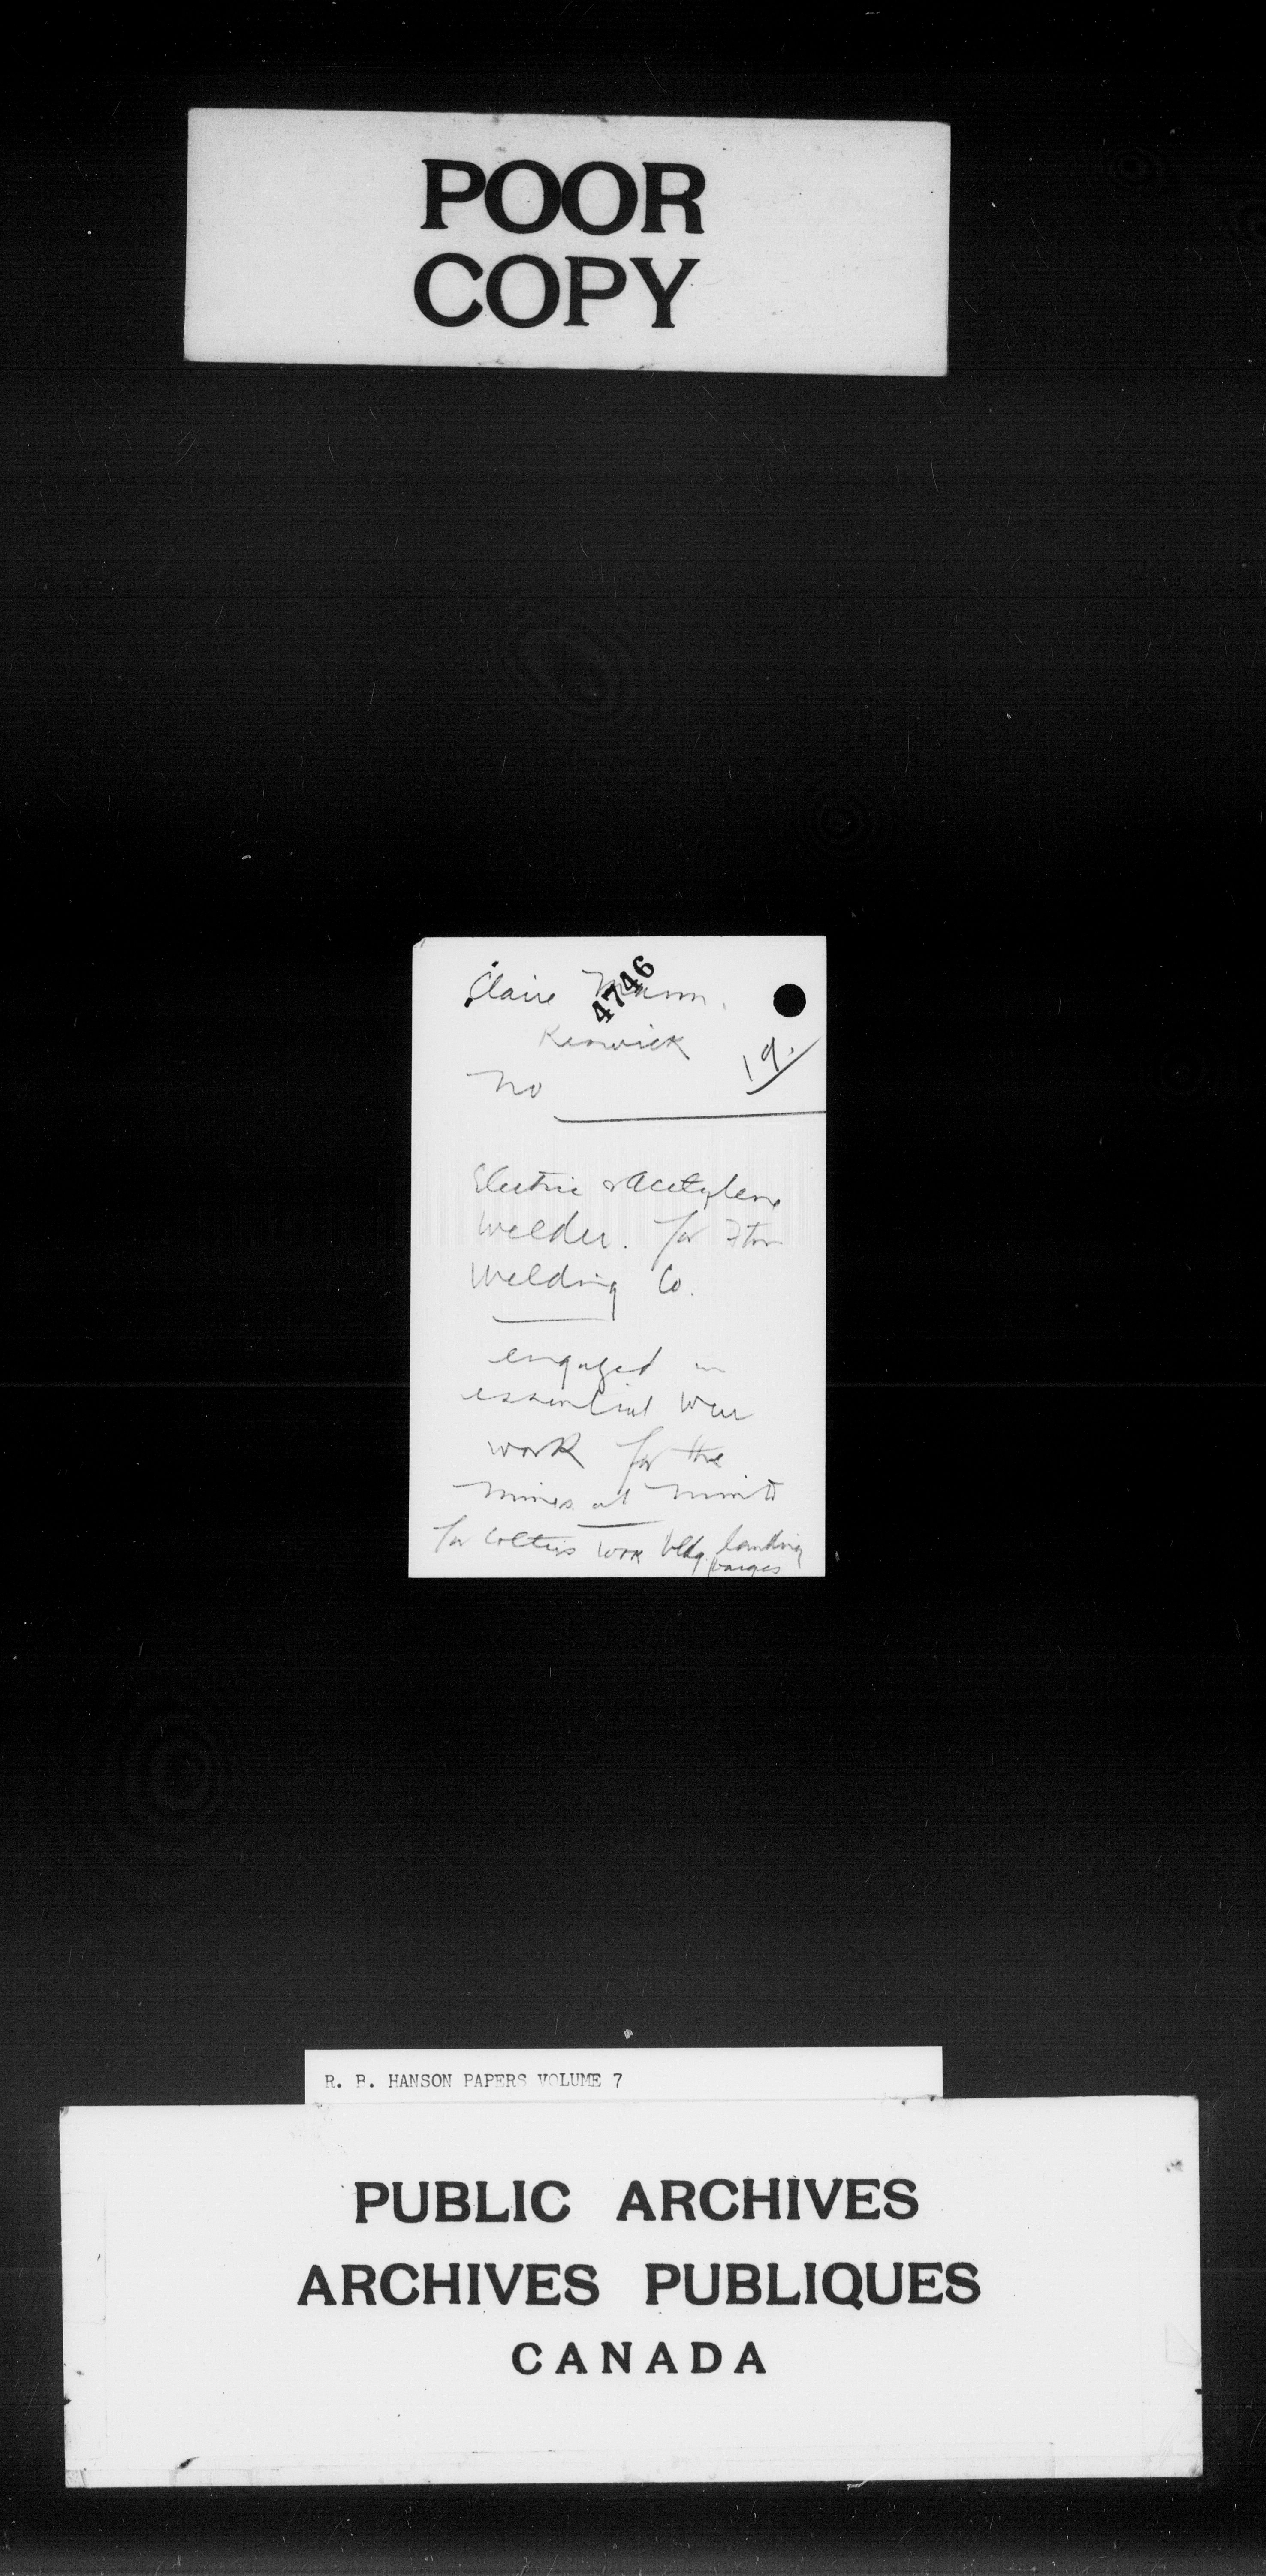 POOR
COPY
4746
Claire
Keswick
19.
No
Electric & Acetylene
Welder. for Fton
Welding Co.
engaged in
essential war
work for the
mines at Minto
for work bldg. landing
barges
R. B. HANSON PAPERS VOLUME 7
PUBLIC ARCHIVES
ARCHIVES PUBLIQUES
CANADA